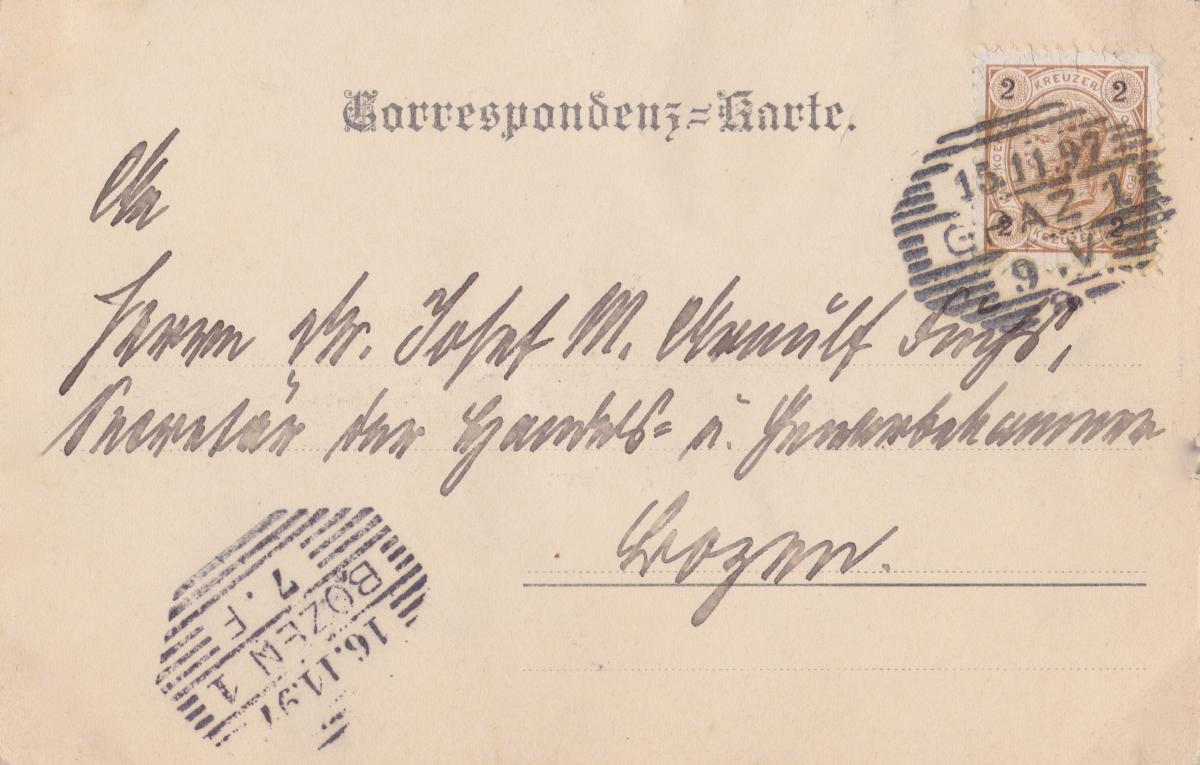 Correspondenz-Karte.
2 KREUZER 2
15.11.97
GRAZ 1
9.V
2 KREUZER 2
An
Herrn Dr. Josef M. Arnulf Fuchs,
Secretär der Handels- u. Gewerbekammer
Bozen.
7.F
BOZEN 1
16.11.97